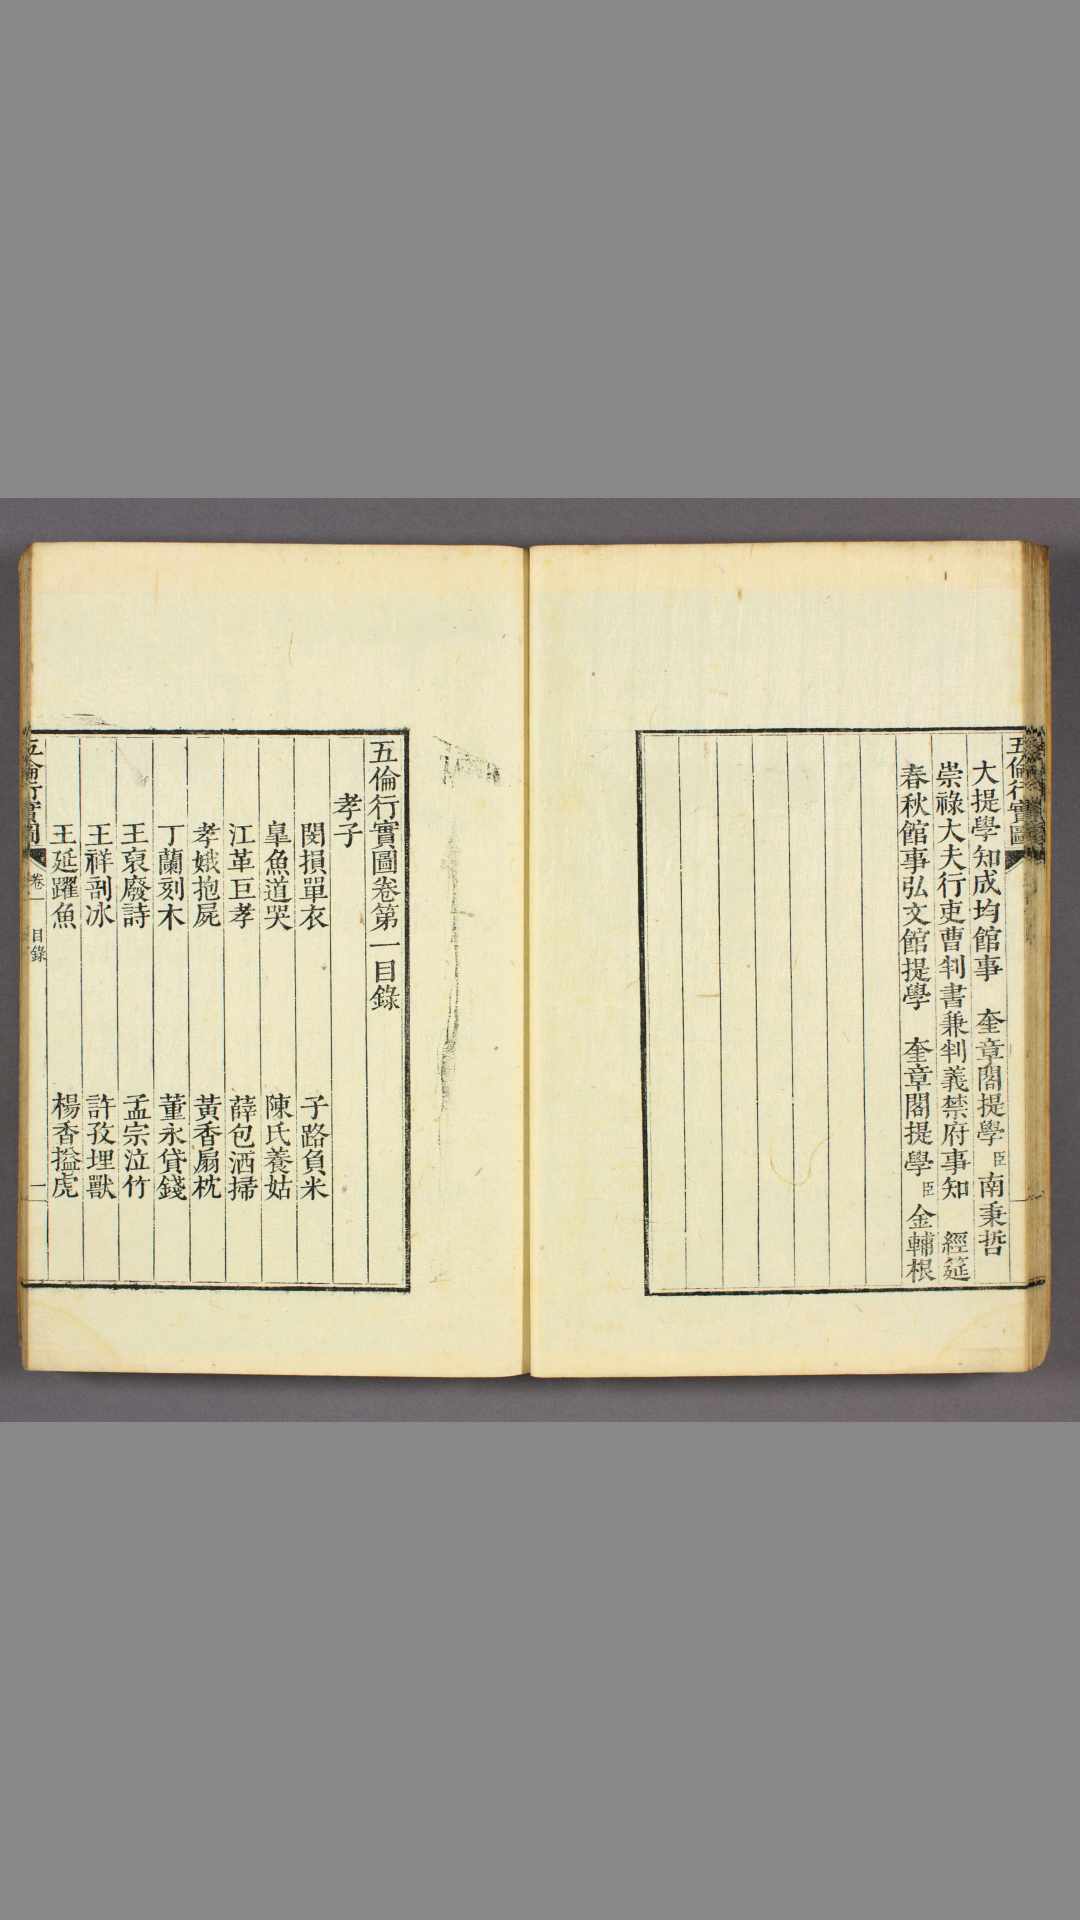 五倫行實圖
大提學知成均館事 奎章閣提學臣南秉哲
崇祿大夫行吏曹判書兼判義禁府事知 經筵
春秋館事弘文館提學 奎章閣提學臣金輔根
五倫行實圖卷第一目錄
孝子
閔損單衣 子路負米
皐魚道哭 陳氏養姑
江革巨孝 薛包洒掃
孝娥抱屍 黃香扇枕
丁蘭刻木 董永貸錢
王裒廢詩 孟宗泣竹
王祥剖冰 許孜埋獸
王延躍魚 楊香搤虎
五倫行實圖 卷一 目錄 一